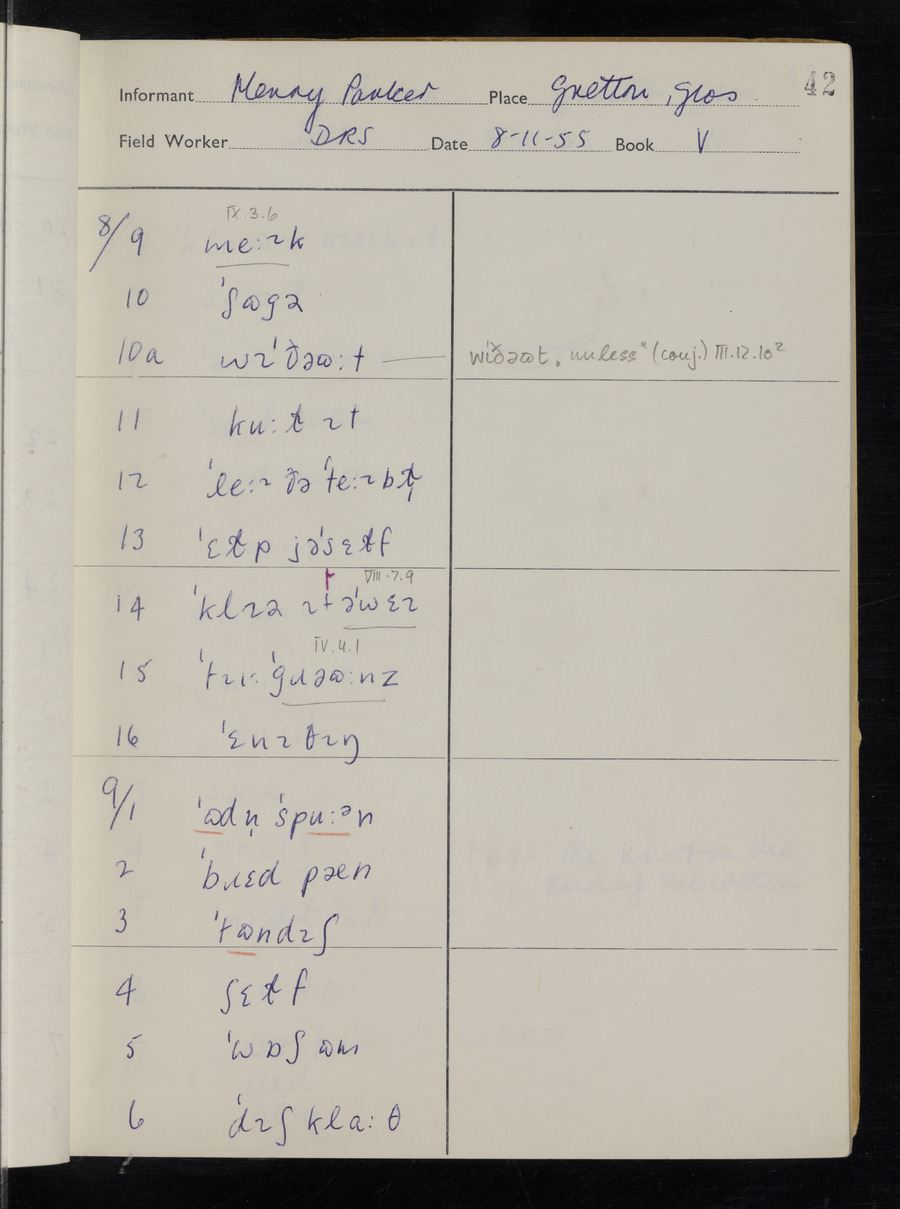 42
Informant Henry Parker Place Gretton, Glos
Field Worker DRS Date 8-11-55 Book V
IX.3.6
8/9 meːɪk
10 ˈʃɷgə
10a wɪˈðəɷːt — wiðəɷt „unless" (conj.) III.12.10²
11 kuːɫ ɪt
12 ˈleːɪ ðə ˈteːɪbɫ̩
13 ˈɛɫp jəˈsɛɫf
VIII.7.9
14 ˈklɪə ɪt əˈwɛɪ
IV.4.1
15 ˈtɹɪˑ ˈgɹəɷːnz
16 ˈɛnɪθɪŋ
9/1 ˈɷdn̩ ˈspuːən
2 ˈbɹɛd pəen
3 ˈtɷndɪʃ
4 ʃɛɫf
5 ˈwɒʃ ɷm
6 ˈdɪʃ klaːθ